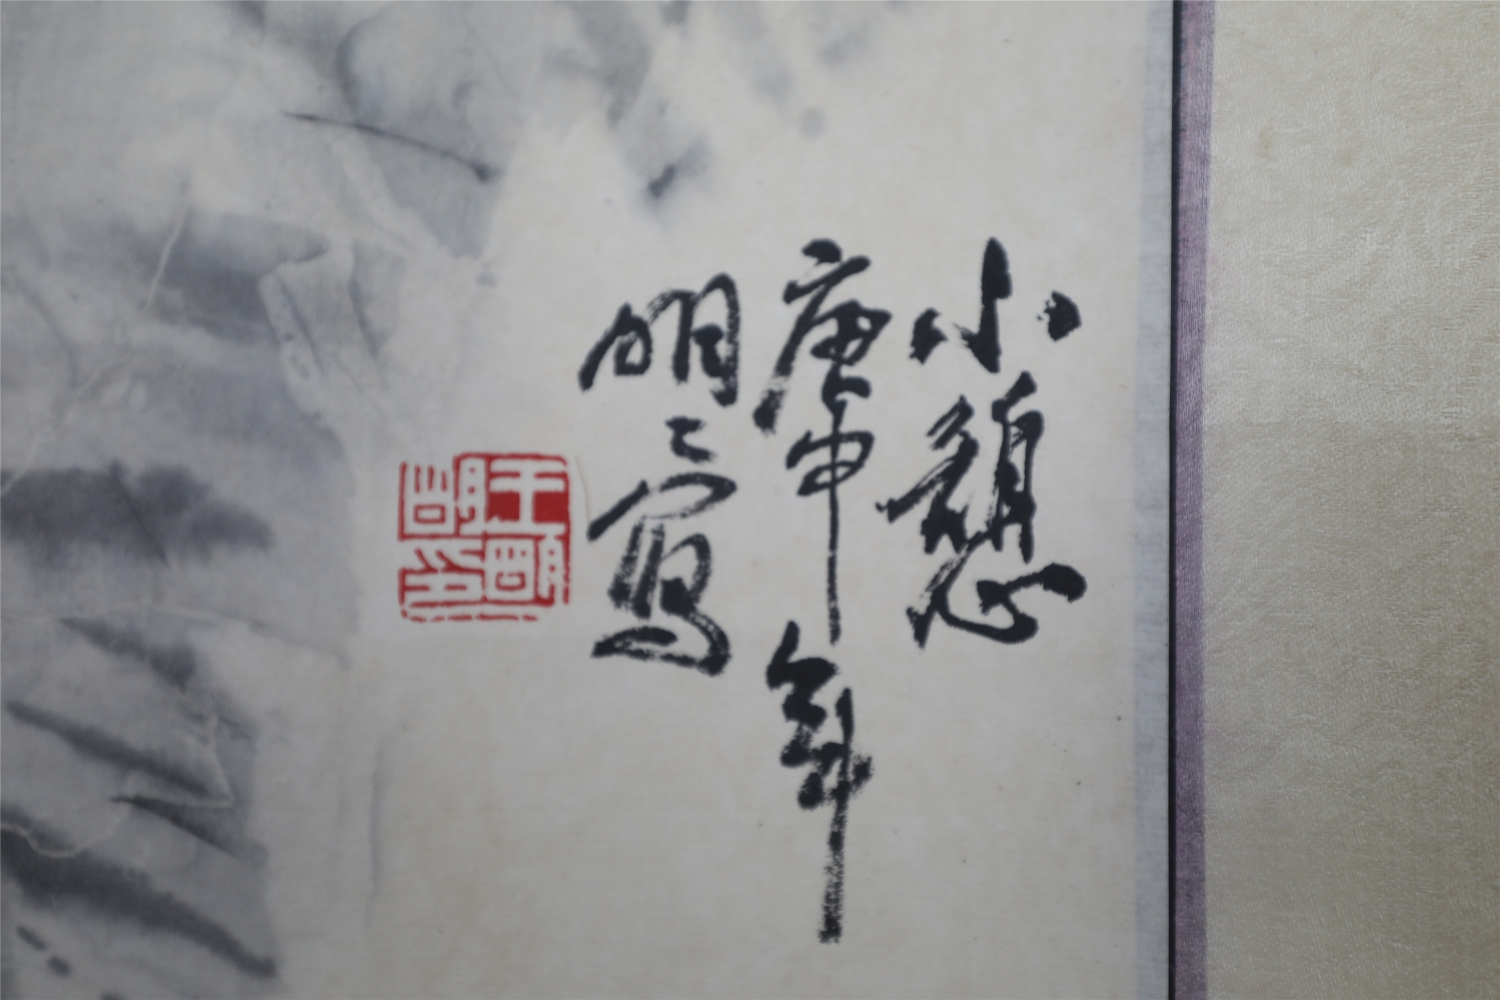 小憩
庚申年
明明寫
王明明印